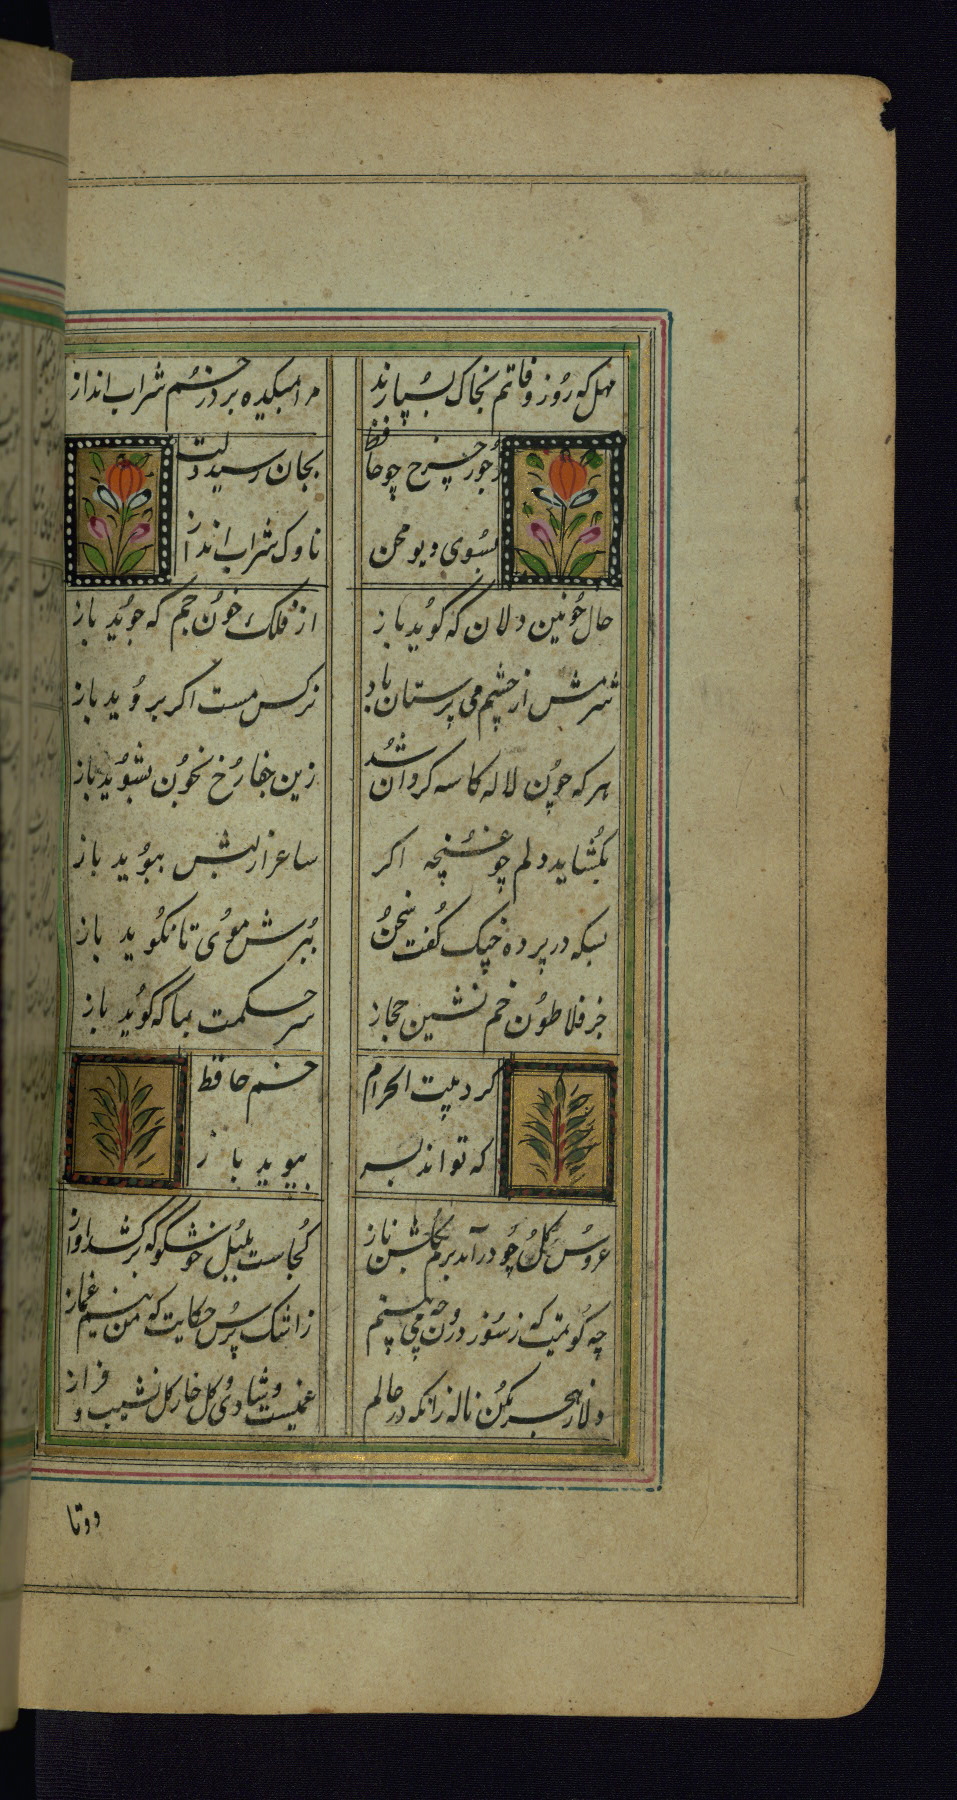 مهل که روز وفاتم بخاک بسپارند مرا میکده بر در خم شراب انداز
ز جور چرخ چو حافظ بجان رسید دلت
بسوی دیو محن ناوک شراب انداز
حال خونین دلان که گوید باز از فلک خون جم که جوید باز
شرمش از چشم می پرستان باد نرکس مست اکر بروید باز
هر که چون لاله کاسه کردان شد زین جفا رخ بخون بشوید باز
بکشاید دلم چو غنچه اکر ساغر از لبش ببوید باز
بسکه در پرده چنک گفت سخن ببرش موی تا نکوید باز
جز فلاطون خم نشین حجاز سر حکمت بما که کوید باز
کرد بیت الحرام خم حافظ
که تواند بسر بپوید باز
عروس کل چو درآمد ببزم کلشن ناز کجاست بلبل خوشکو که برکشد آواز
چه کویمت که ز سوز درون چه می بینم ز اشک پرس حکایت که من نیم غماز
دلا ز هجر مکن ناله زانکه در عالم غمیست و شادی و کل خار کل نشیب و فراز
دوتا